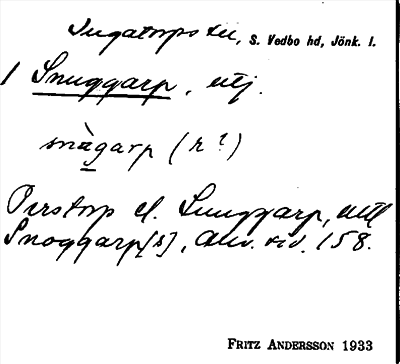 Ingatorps sn, S. Vedbo hd, Jönk. l.
1 Snuggarp, utj.
snàgarp (r?)
Perstorp el. Snuggarp, utj.
Snoggarp[s], Alv. s.v. 158.
FRITZ ANDERSSON 1933